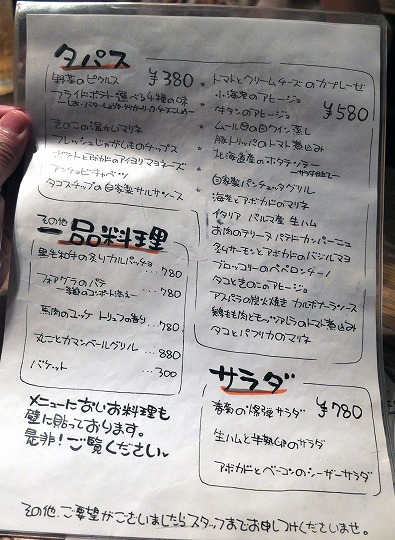 タパス
¥380
野菜のピクルス
フライドポテト選べる4種の味
きのこの温かいマリネ
フレッシュじゃがいものチップス
ポテトとアボカドのアイヨリマヨネーズ
アンチョビキャベツ
タコスチップの自家製サルサソース
¥580
トマトとクリームチーズのカプレーゼ
小海老のアヒージョ
牛タンのアヒージョ
ムール貝の白ワイン蒸し
豚トリッパのトマト煮込み
北海道産のホタテソテー
自家製パンチェッタグリル
海老とアボカドのマリネ
イタリア パルマ産 生ハム
お肉のテリーヌ パテドカンパーニュ
炙りサーモンとアボカドのバジルマヨ
ブロッコリーのペペロンチーノ
タコときのこのアヒージョ
アスパラの炭火焼き カルボナーラソース
鶏もも肉とモッツァレラのトマト煮込み
タコとパプリカのマリネ
その他
一品料理
黒毛和牛の炙りカルパッチョ
…780
フォアグラのパテ
…780
馬肉のユッケ トリュフの香り
…780
丸ごとカマンベールグリル …880
バケット …300
メニューにないお料理も
壁に貼っております。
是非!ご覧ください~
サラダ
¥780
春菊の爆弾サラダ
生ハムと半熟卵のサラダ
アボカドとベーコンのシーザーサラダ
その他、ご要望がございましたらスタッフまでお申しつけくださいませ。